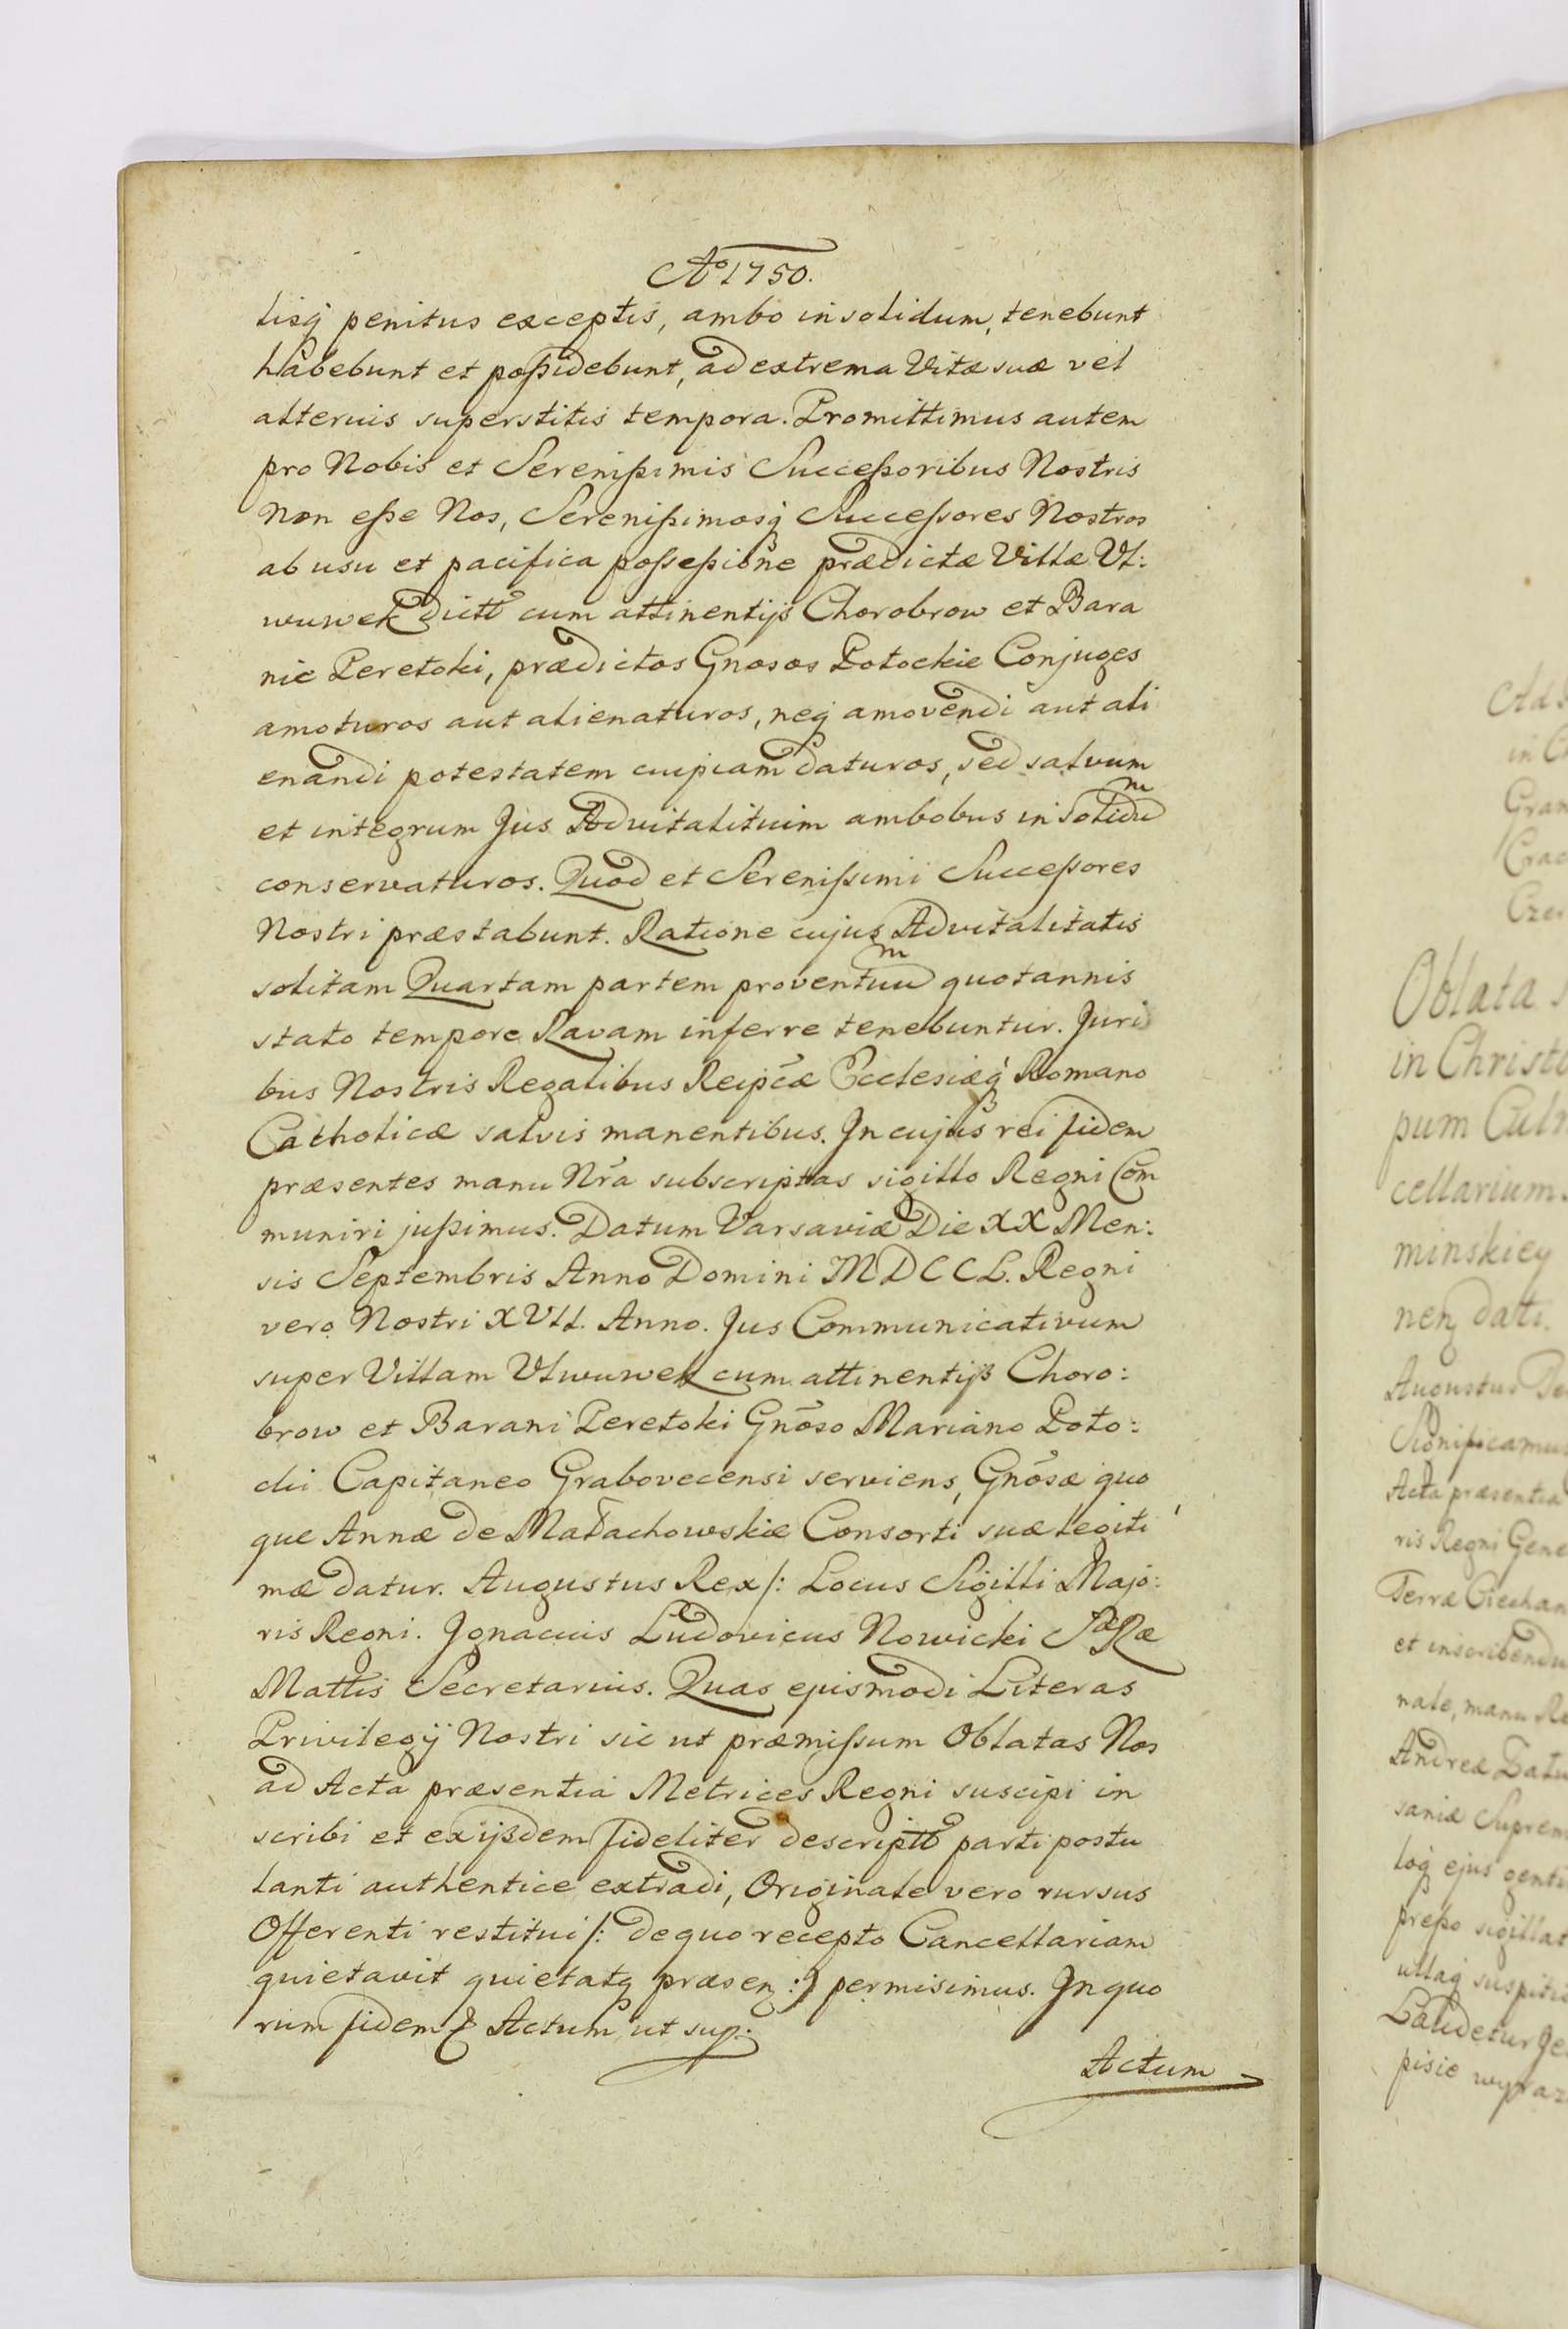 Aº 1750.
lisq penitus exceptis, ambo in solidum, tenebunt
habebunt et poßidebunt, ad extrema Vitæ suæ vel
alterius superstitis tempora. Promittimus autem
pro Nobis et Serenißimis Succeßoribus Nostris
Non eße Nos, Serenißimosq Successores Nostros
ab usu et pacifica posseßione prædictæ Villæ Vl:
wuwek dictt cum attinentijs Chorobrow et Bara
nie Peretoki, prædictos Gnosos Potockie Conjuges
amoturos aut alienaturos, neq amovendi aut ali
enandi potestatem cuipiam daturos, sed salvum
et integrum Jus Advitalituim ambobus in Solidum
conservaturos. Quod et Serenissimi Successores
Nostri præstabunt. Ratione cujus Advitalitatis
solitam Quartam partem proventuum quotannis
stato tempore Ravam inferre tenebuntur. Juri
bus Nostris Regalibus Reipcæ Ecclesiæq Romano
Catholicæ salvis manentibus. In cujus rei fidem
præsentes manu Nrã subscriptas sigillo Regni Com
muniri jußimus. Datum Varsaviæ Die XX Men:
sis Septembris Anno Domini MDCCL. Regni
vero Nostri XVII. Anno. Jus Communicativum
super Villam Vlwuwek cum attinentijs Choro:
brow et Barani Peretoki Gnõso Mariano Poto:
cki Capitaneo Grabovecensi serviens, Gnõsæ quo
que Annæ de Małachowskie Consorti suæ legiti
mæ datur. Augustus Rex /: Locus Sigilli Majo:
ris Regni. Ignacius Ludovicus Nowicki SæRæ
Mattis Secretarius. Quas ejusmodi Literas
Privilegÿ Nostri sic ut præmissum Oblatas Nos
ad Acta præsentia Metrices Regni suscipi in
scribi et ex ijsdem fideliter descriptt parti postu
lanti authentice extradi, Originale vero rursus
Offerenti restitui /: de quo recepto Cancellariam
quietavit quietatq præsen :/ permisimus. In quo
rum fidem & Actum ut sup:
Actum
Oblata
in Christo
pum Culm
cellarium
minskiey
nen dati.
Augustus
Significamus
Acta præsentia
ris Regni Gene
Terræ Ciechan
et inscribendu
nale, manu Re
Andreæ Zału
saniæ Suprem
loq ejus genti
preßo sigillat
ullaq suspitio
Laudetur Je
pisie wyraz